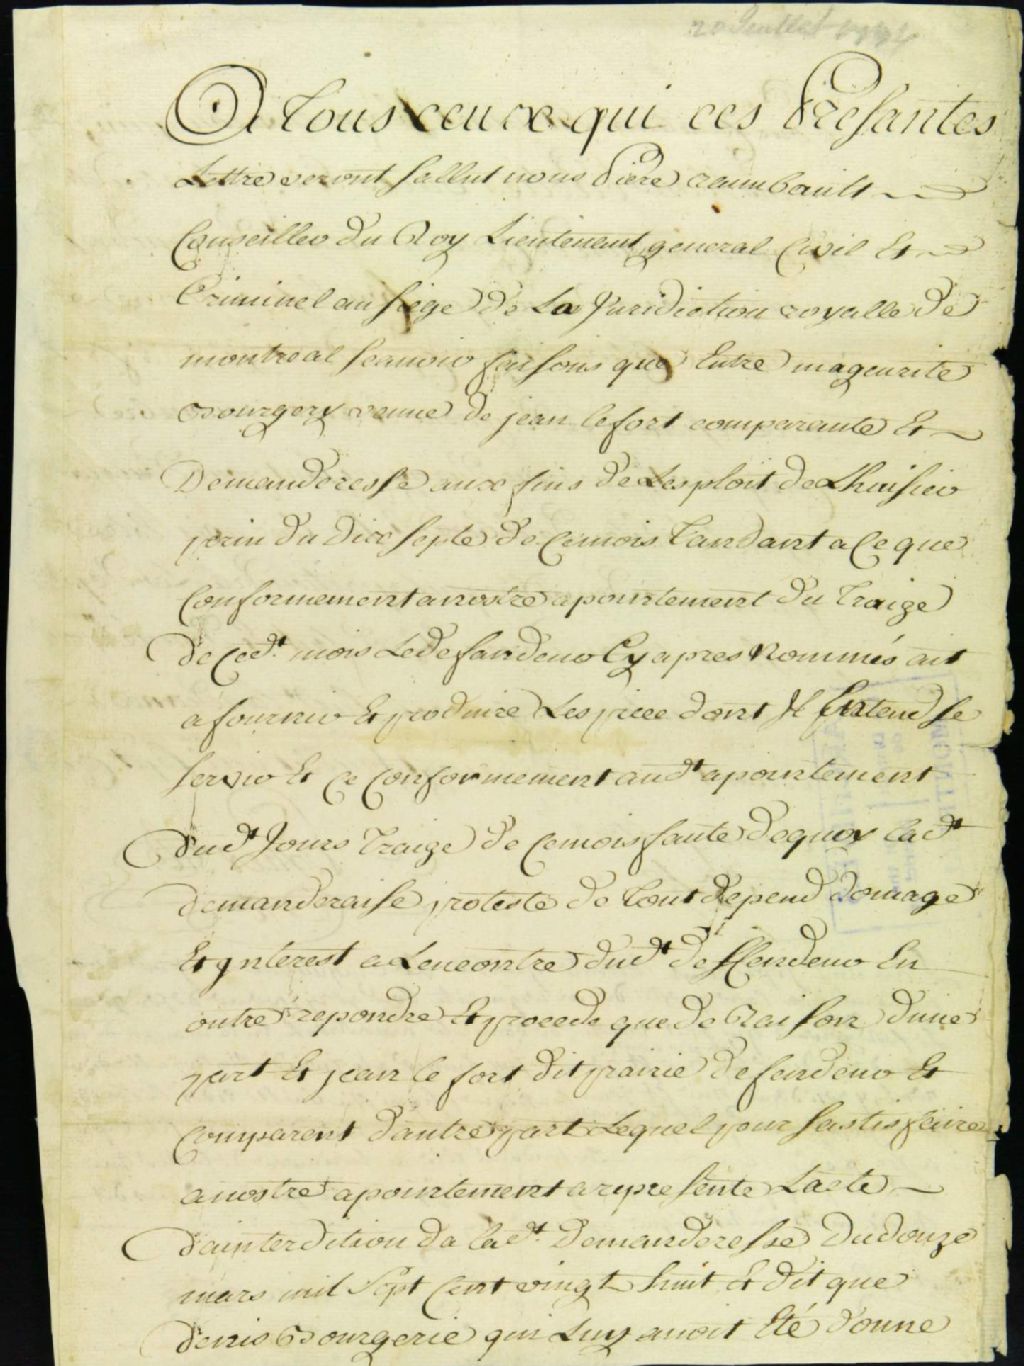 20 Juillet
A Tous ceuce qui ces Présantes
Lettre veront Sallut nous Piere raimbault
Conseiller du Roy Lieutenant general Civil Et
Criminel au siege de La Juridiction royalle de
montreal scauoir faisons que Entre magcurite
Bourgery veuue de jean lefort comparante Et
Demanderesse auce fins de Lesploit de Lhuisier
perin du dice septe de ce mois Tandant a Ce que
Conformement a nostre apointement du Traize
de Ced.t mois Le defandeur Cy apres Nommés ait
a fournir Et produire Les piece dont Jl Entend se
servir Et Ce Conformement aud.t apointement
dud.t Jours Traize de ce mois faute de quoy lad.t
demanderaise proteste de Tout depend domage
Et ynterest a Lencontre dud.t deffendeur En
outre repondre Et procede que de Raison dune
part Et jean le fort dit prairie defendeur Et
Comparent d'autre part Lequel pour sastisfaire
a nostre apointement a represente Lacte
d'ainterdition da lad.t Demanderesse Du douze
mars mil Sept Cent vingt huit Et dit que
denis Bourgerie qui Luy auoit Eté donne